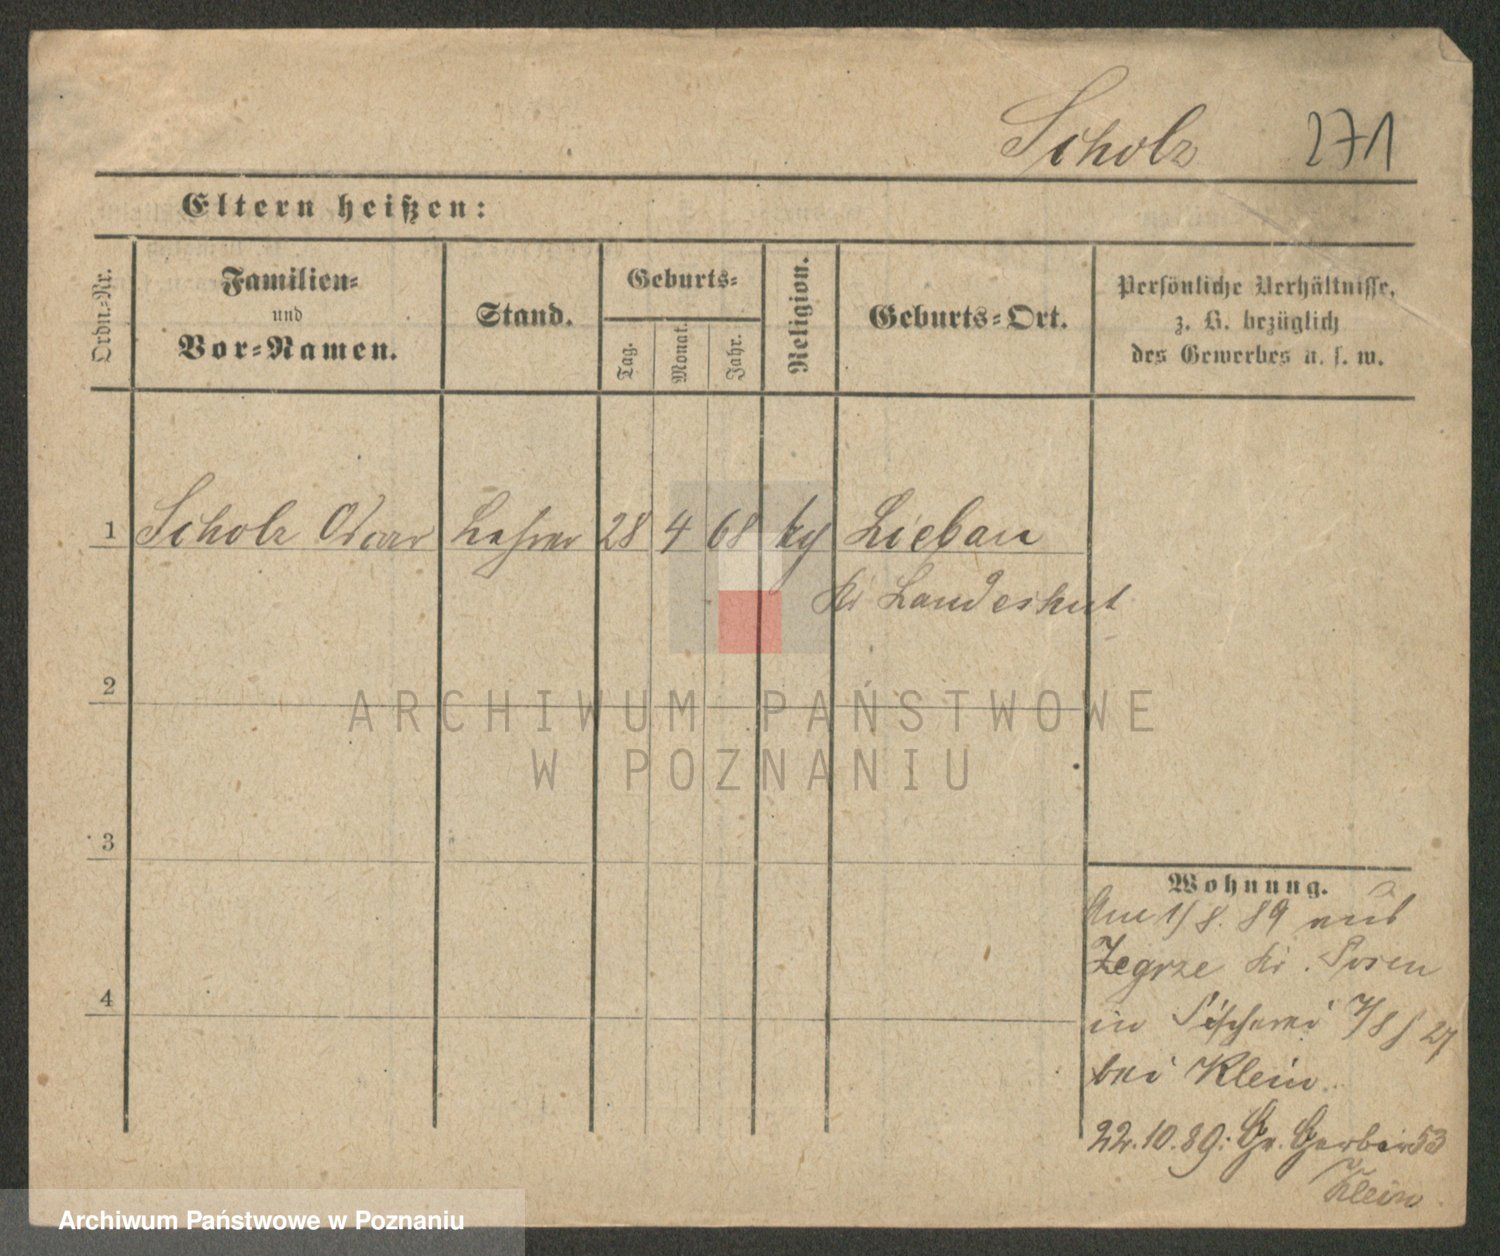 Scholz 271
Eltern heißen:
Ordn.-Nr.
Familien-
und
Vor-Namen.
Stand.
Geburts-
Tag.
Monat.
Jahr.
Religion.
Geburts-Ort.
Persönliche Verhältnisse,
z. B. bezüglich
des Gewerbes u. s. w.
1 Scholz Oscar Lehrer 28 4 68 kg Liebau
Kr Landeshut
2
ARCHIWUM PAŃSTWOWE
W POZNANIU
3
4
Wohnung.
Am 1/8. 89 aus
Zegrze Kr. Posen
in Fischerei 7/8 27
bei Klein.
22.10.89: Gr. Gerber 53
Klein
Archiwum Państwowe w Poznaniu